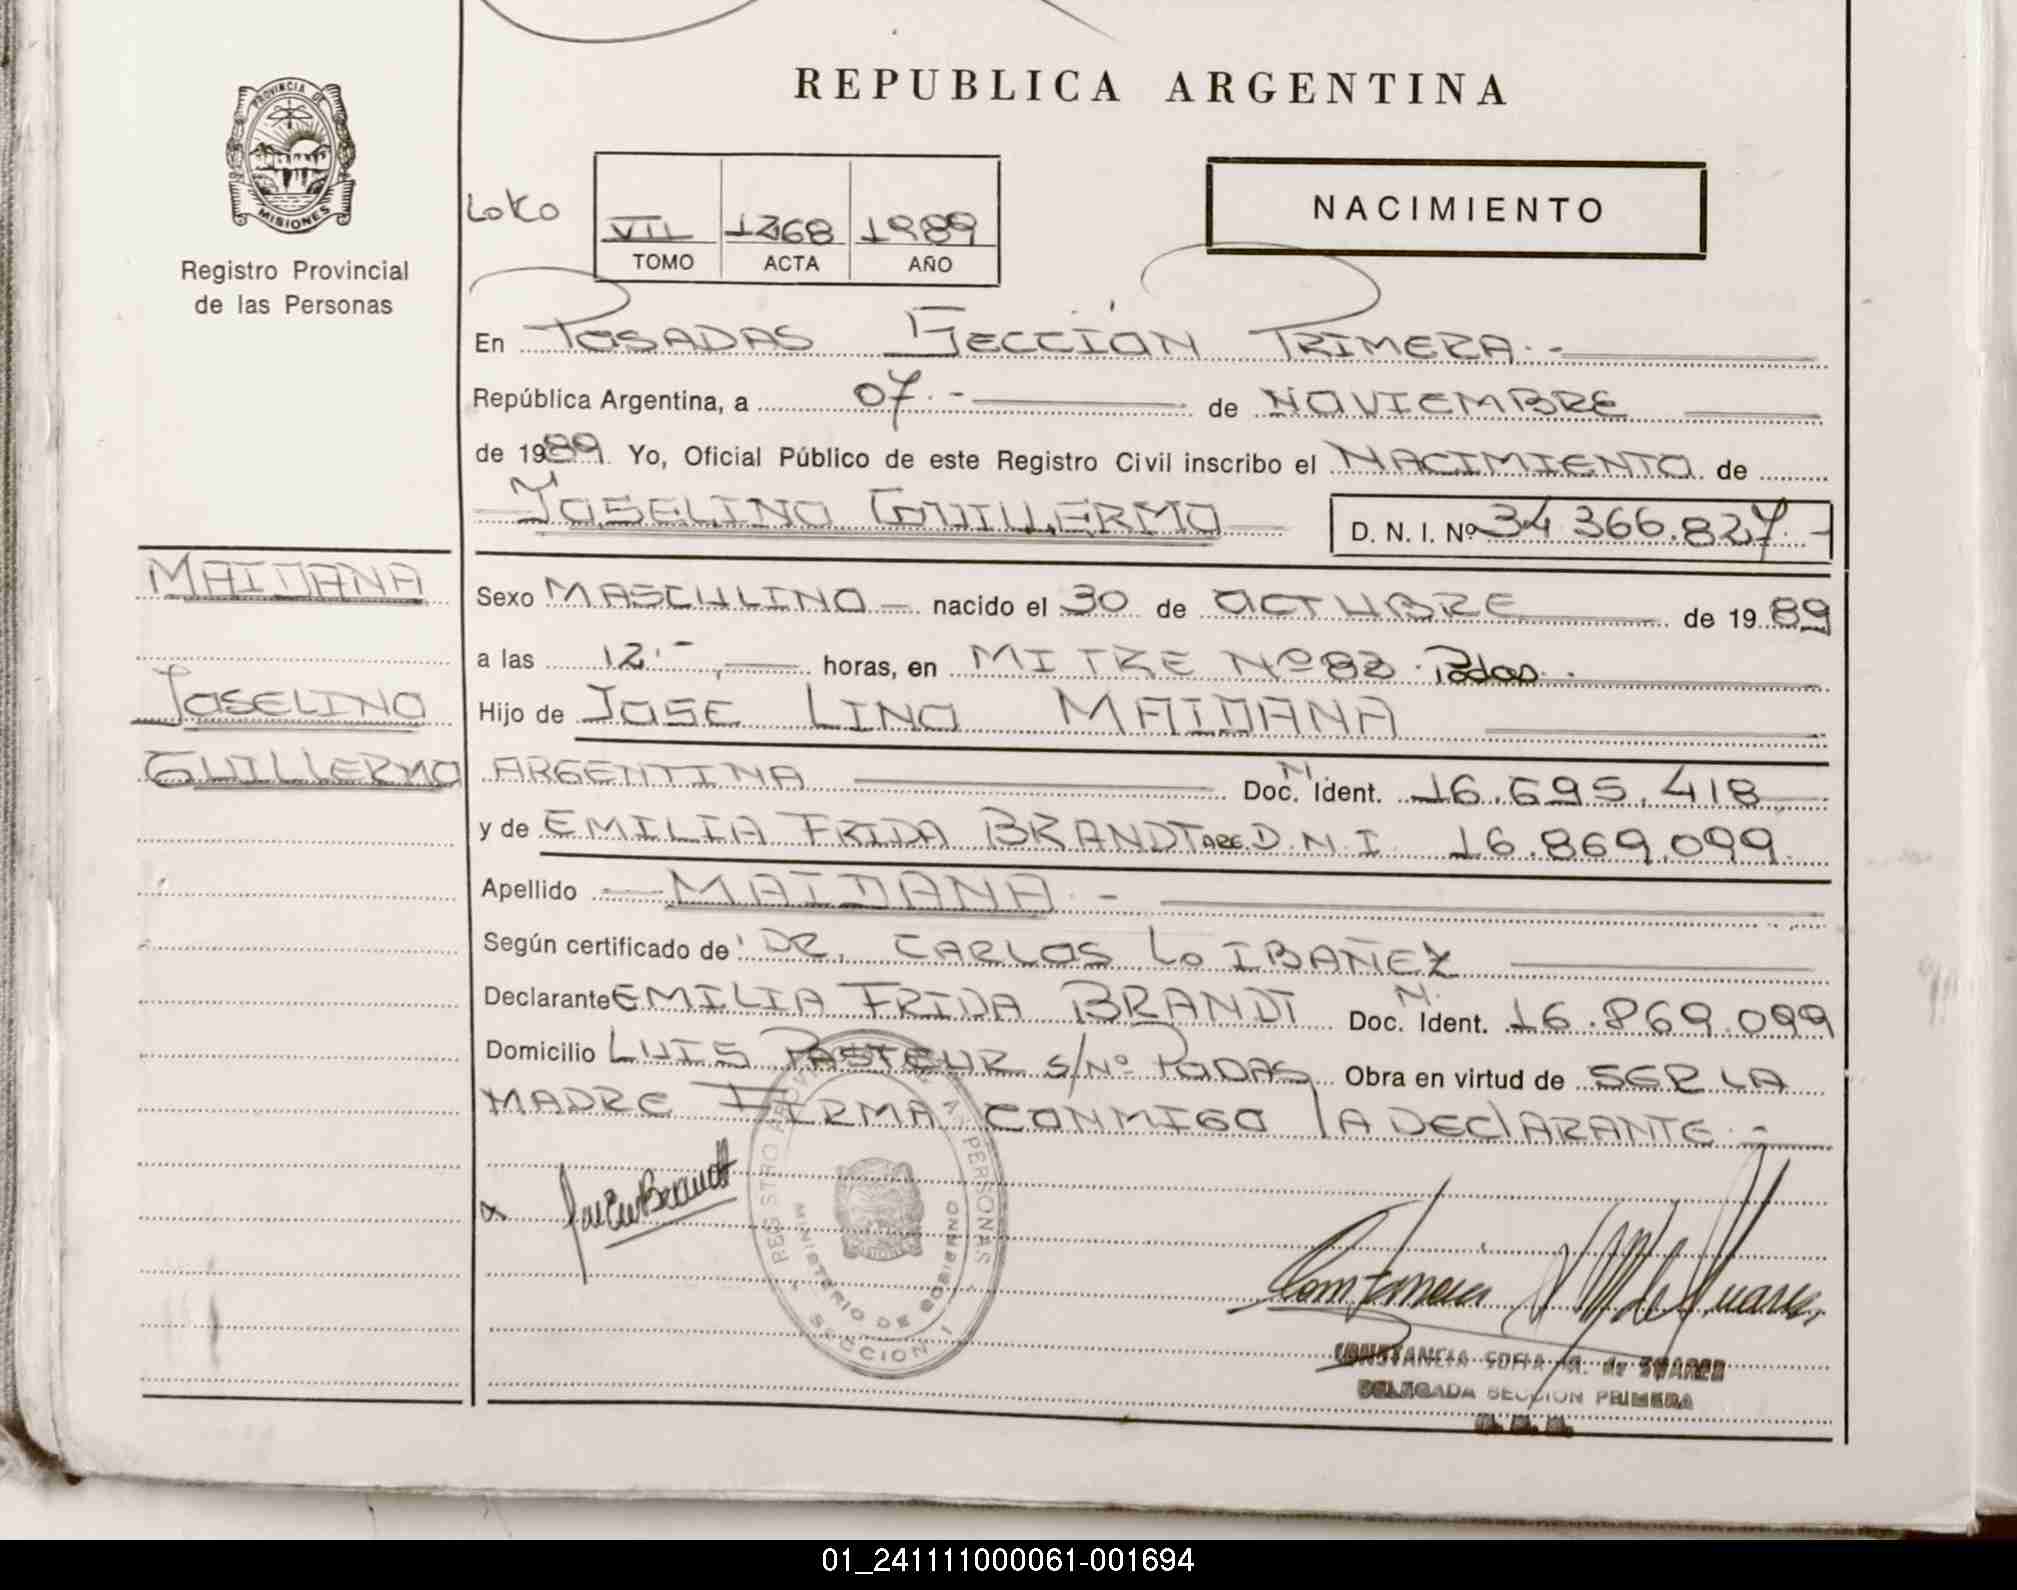 REPUBLICA ARGENTINA
PROVINCIA DE
MISIONES
Registro Provincial
de las Personas
NACIMIENTO
VII 1268 1989
TOMO ACTA AÑO
En POSADAS SECCIÓN PRIMERA.-
República Argentina, a 07.- de NOVIEMBRE
de 1989. Yo, Oficial Público de este Registro Civil inscribo el NACIMIENTO de
JOSELINO GUILLERMO D. N. I. Nº 34 366.827.-
MAIDANA
JOSELINO
GUILLERMO
Sexo MASCULINO - nacido el 30 de OCTUBRE de 1989
a las 12.- horas, en MITRE Nº 82 . Pdas .
Hijo de JOSE LINO MAIDANA
ARGENTINA Doc. N. Ident. 16.695.418
y de EMILIA FRIDA BRANDT ARG. D.N.I. 16.869.099
Apellido MAIDANA.-
Según certificado de DR. CARLOS Lo IBAÑEZ
Declarante EMILIA FRIDA BRANDT Doc. N. Ident. 16.869.099
Domicilio LUIS PASTEUR s/Nº PODAS Obra en virtud de SER LA
MADRE FIRMA CONMIGO LA DECLARANTE.-
REGISTRO PERSONAS
MINISTERIO DE GOBIERNO
SECCION 1
CONSTANCIA SOFIA M. de SUAREZ
DELEGADA SECCION PRIMERA
01_241111000061-001694